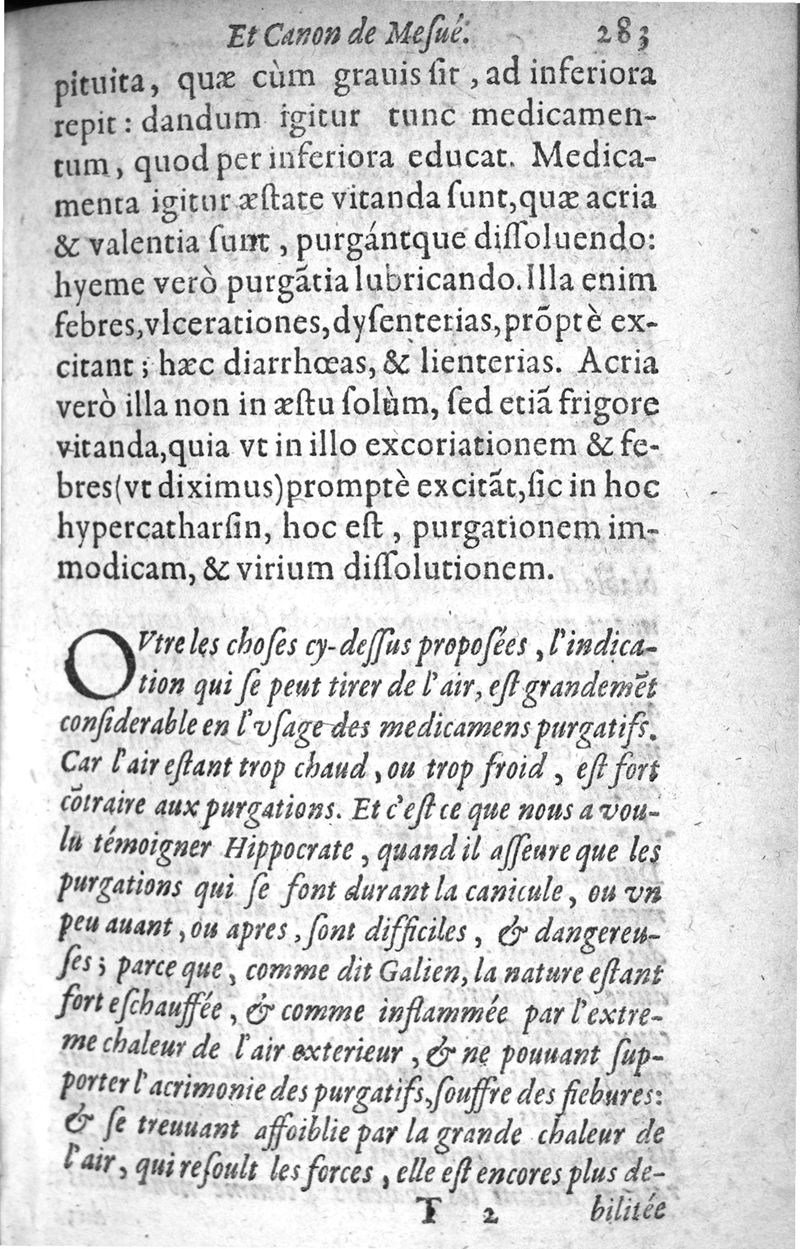 Et Canon de Meſué. 283
pituita, quæ cùm grauis ſit, ad inferiora
repit: dandum igitur tunc medicamen-
tum, quod per inferiora educat. Medica-
menta igitur æſtate vitanda ſunt, quæ acria
& valentia ſunt, purgántque diſſoluendo:
hyeme verò purgãtia lubricando. Illa enim
febres, vlcerationes, dyſenterias, prõptè ex-
citant; hæc diarrhœas, & lienterias. Acria
verò illa non in æſtu ſolùm, ſed etiã frigore
vitanda, quia vt in illo excoriationem & fe-
bres (vt diximus) promptè excitãt, ſic in hoc
hypercatharſin, hoc eſt, purgationem im-
modicam, & virium diſſolutionem.
OVtre les choſes cy-deſſus propoſées, l'indica-
tion qui ſe peut tirer de l'air, eſt grandemẽt
conſiderable en l'vſage des medicamens purgatifs.
Car l'air eſtant trop chaud, ou trop froid, eſt fort
cõtraire aux purgations. Et c'eſt ce que nous a vou-
lu témoigner Hippocrate, quand il aſſeure que les
purgations qui ſe font durant la canicule, ou vn
peu auant, ou apres, ſont difficiles, & dangereu-
ſes; parce que, comme dit Galien, la nature eſtant
fort eſchauffée, & comme inflammée par l'extre-
me chaleur de l'air exterieur, & ne pouuant ſup-
porter l'acrimonie des purgatifs, ſouffre des fiebures:
& ſe treuuant affoiblie par la grande chaleur de
l'air, qui reſoult les forces, elle eſt encores plus de-
T 2 bilitée